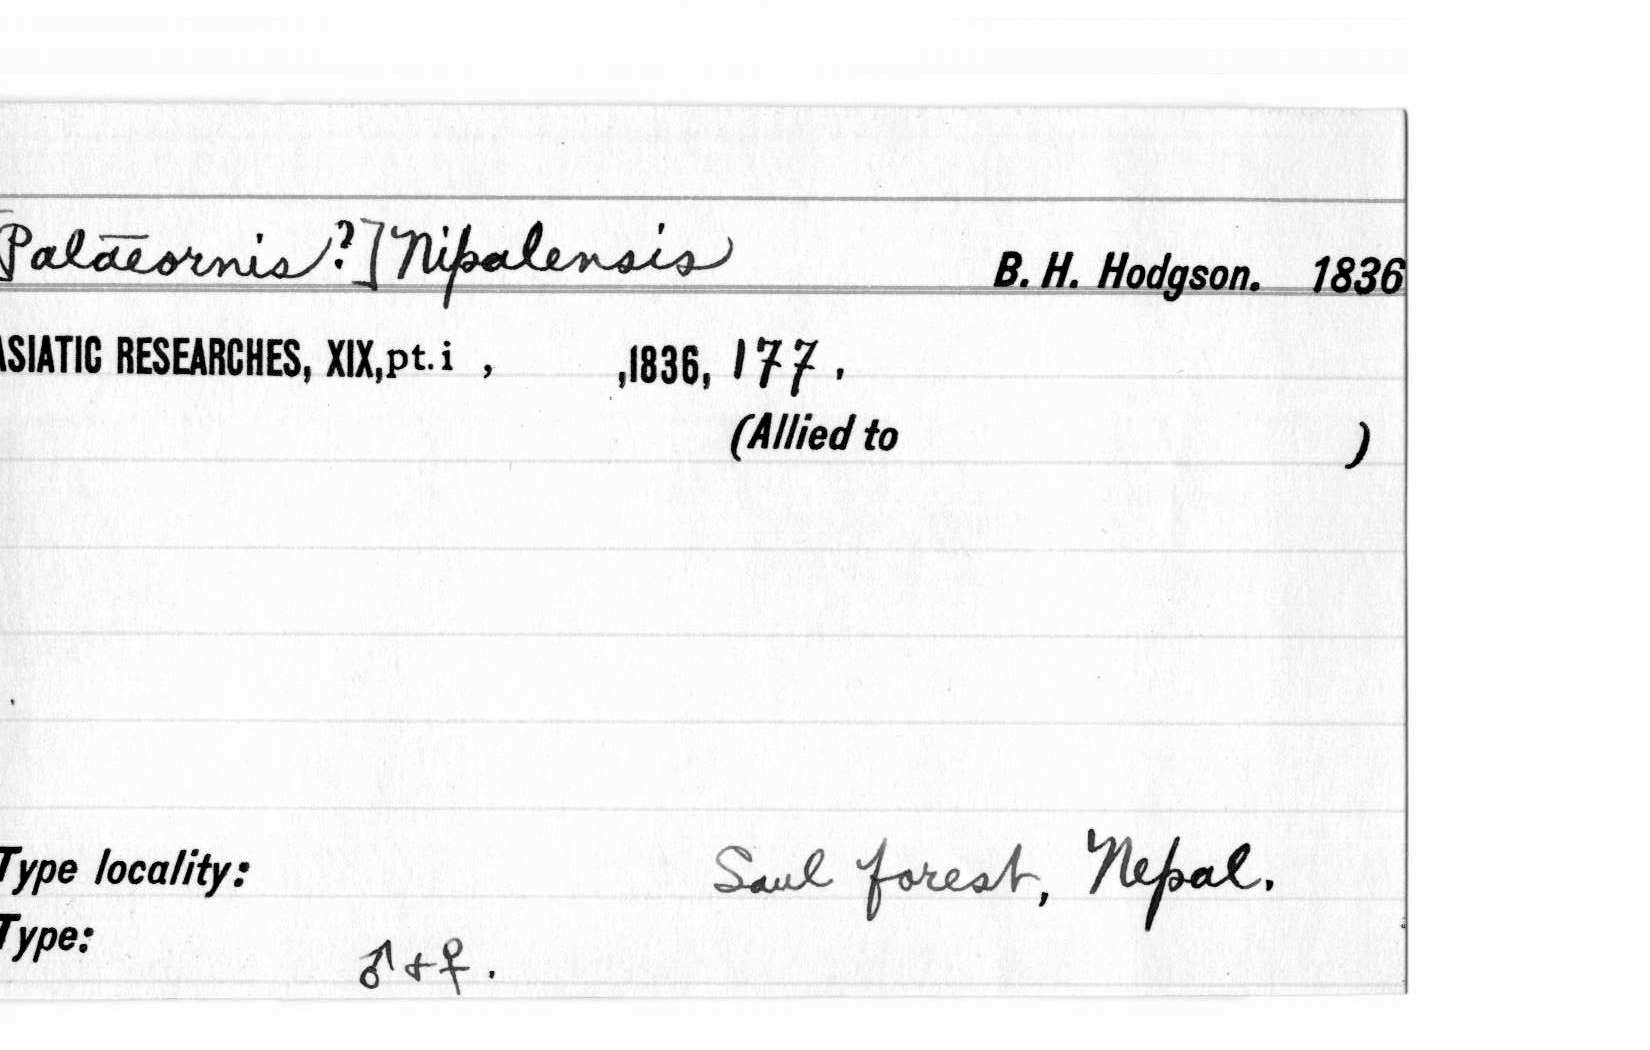 [Palaeornis?] Nipalensis B. H. Hodgson. 1836
ASIATIC RESEARCHES, XIX, pt. i , ,1836, 177.
(Allied to )
Type locality: Saul forest, Nepal.
Type: ♂ + ♀.